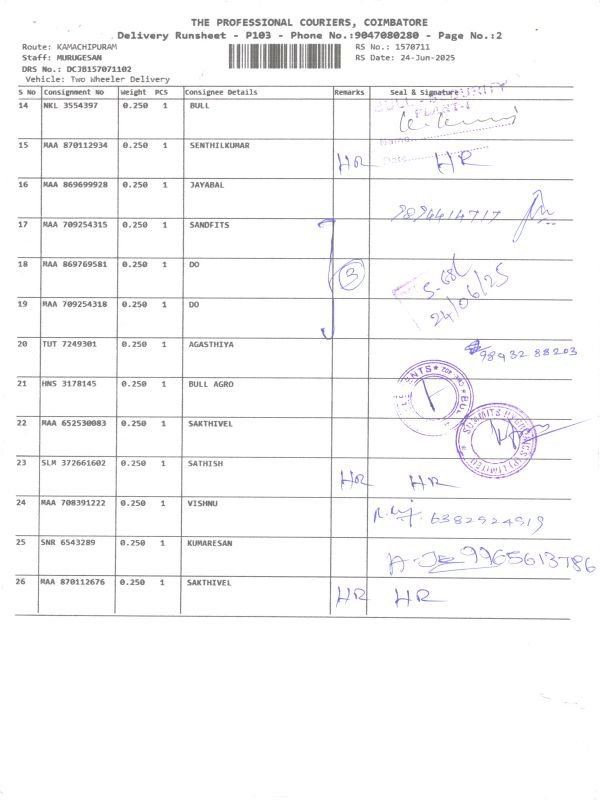 THE PROFESSIONAL COURIERS, COIMBATORE
Delivery Runsheet - P103 - Phone No.:9047080280 - Page No.:2
Route: KAMACHIPURAM RS No.: 1570711
Staff: MURUGESAN RS Date: 24-Jun-2025
DRS No.: DCJB157071102
Vehicle: Two Wheeler Delivery
S No Consignment No Weight PCS Consignee Details Remarks Seal & Signature
14 NKL 3554397 0.250 1 BULL
PLANT-I
Name
Date
15 MAA 870112934 0.250 1 SENTHILKUMAR HR HR
16 MAA 869699928 0.250 1 JAYABAL 9894414717
17 MAA 709254315 0.250 1 SANDFITS
18 MAA 869769581 0.250 1 DO 3
24/06/25
19 MAA 709254318 0.250 1 DO
20 TUT 7249301 0.250 1 AGASTHIYA 9893288203
21 HNS 3178145 0.250 1 BULL AGRO
22 MAA 652530083 0.250 1 SAKTHIVEL
23 SLM 372661602 0.250 1 SATHISH HR HR
24 MAA 708391222 0.250 1 VISHNU 6382924919
25 SNR 6543289 0.250 1 KUMARESAN 9965613786
26 MAA 870112676 0.250 1 SAKTHIVEL HR HR